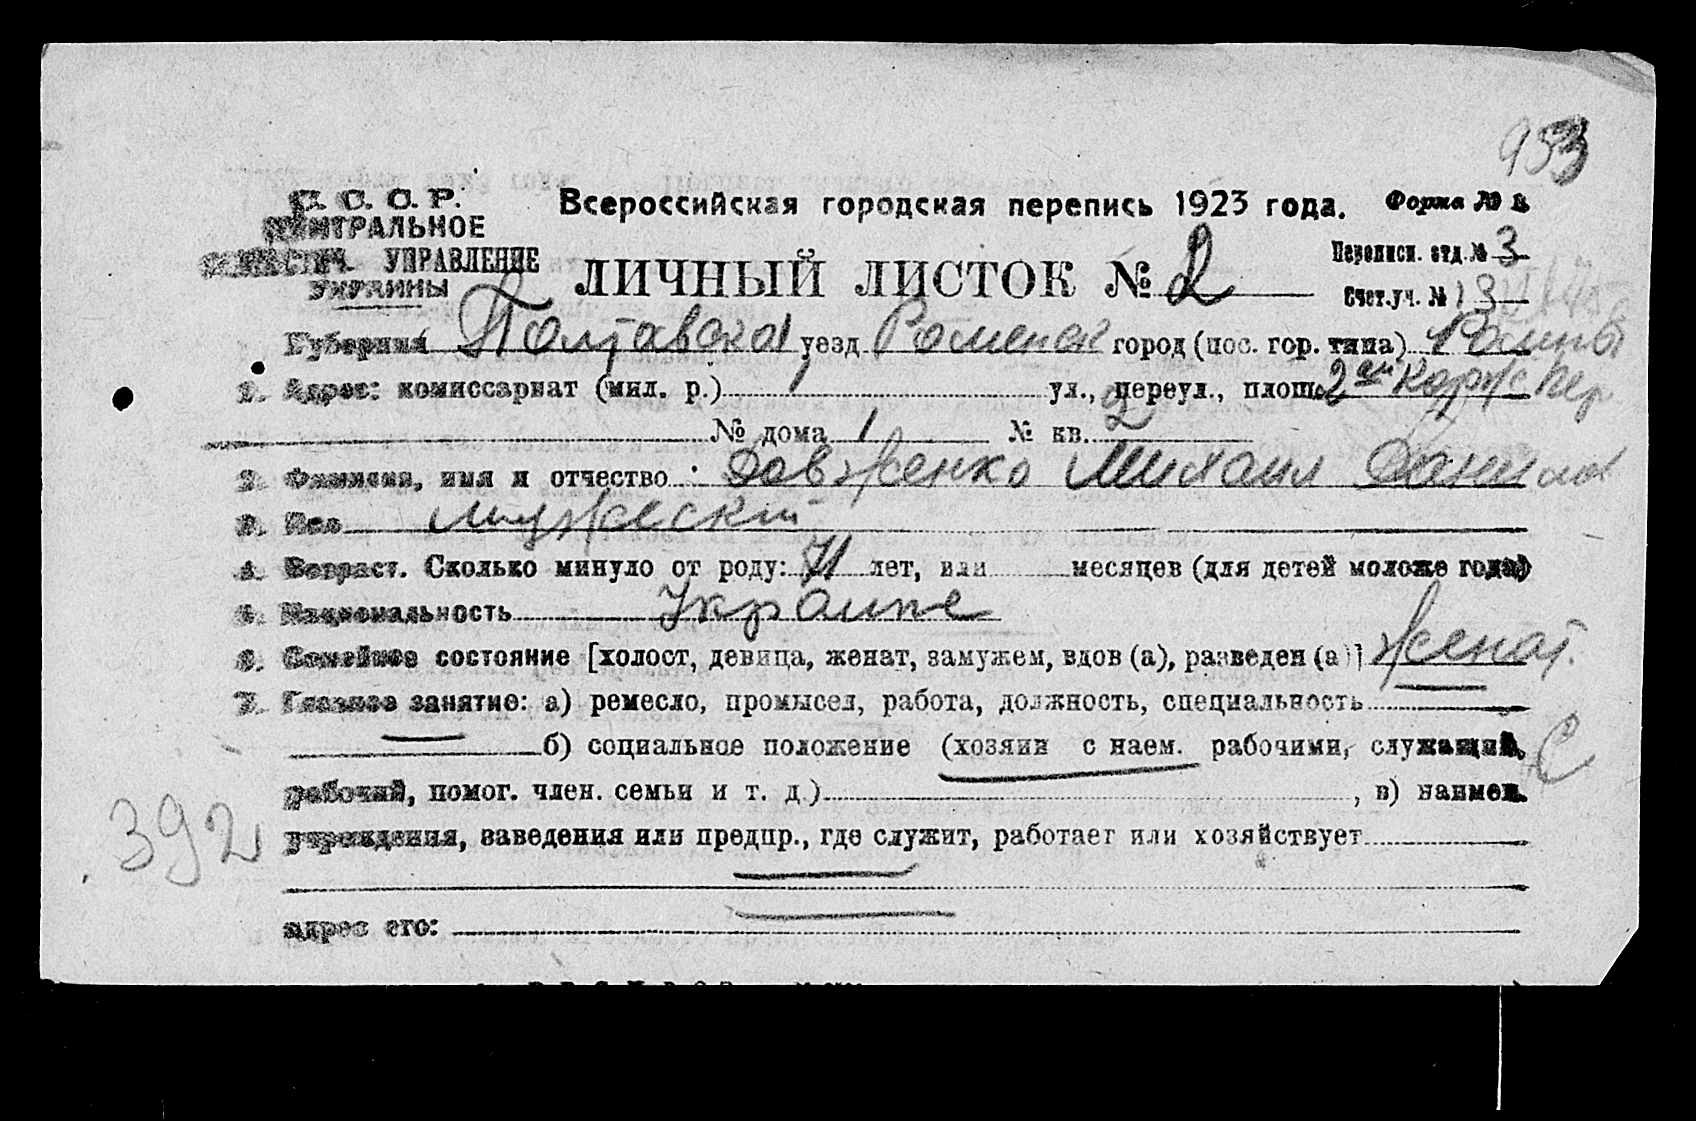 953
С. С. С. Р.
ЦЕНТРАЛЬНОЕ
СТАТИСТИЧ. УПРАВЛЕНИЕ
УКРАИНЫ
Всероссийская городская перепись 1923 года.
Форма № 1.
ЛИЧНЫЙ ЛИСТОК № 2
Переписн. отд. № 3
Счет. уч. № 13
Губерния Полтавская уезд Роменск город (пос. гор. типа) Ромны
1. Адрес: комиссариат (мил. р.) 1 ул., переул., площ. 2ой Корж пер
№ дома 1 № кв. 2
2. Фамилия, имя и отчество Довженко Михаил Данилов
3. Пол мужеский
4. Возраст. Сколько минуло от роду: 71 лет, или месяцев (для детей моложе года)
5. Национальность Украине
6. Семейное состояние [холост, девица, женат, замужем, вдов (а), разведен (а)] женат.
7. Главное занятие: а) ремесло, промысел, работа, должность, специальность
б) социальное положение (хозяин с наем. рабочими, служащий,
рабочий, помог. член. семьи и т. д.) , в) наимен.
учреждения, заведения или предпр., где служит, работает или хозяйствует
392
адрес его: